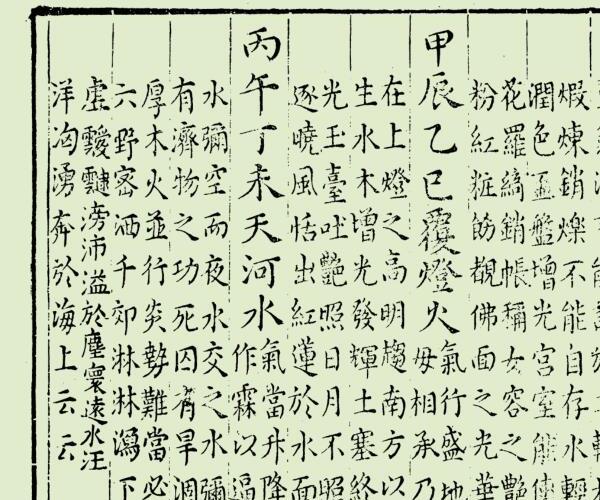 煅煉銷爍不能自存水輕
潤色盃盤增光宮室能使
花羅縞銷帳稱女容之艷
粉紅粧飾觀佛面之光華
甲辰乙巳覆燈火氣行盛地
毋相承乃
在上燈之高明趨南方以
生水木增光發輝土塞終
光玉臺吐艷照日月不照
逐曉風恬出紅蓮於水面
丙午丁未天河水氣當升降
作霖以逼
水彌空而夜水交之水彌
有濟物之功死囚有旱涸
厚木火並行炎勢難當必
六野密洒千郊淋淋瀉下
虛靉靆滂沛溢於塵寰遠水汪
洋洶湧奔於海上云云